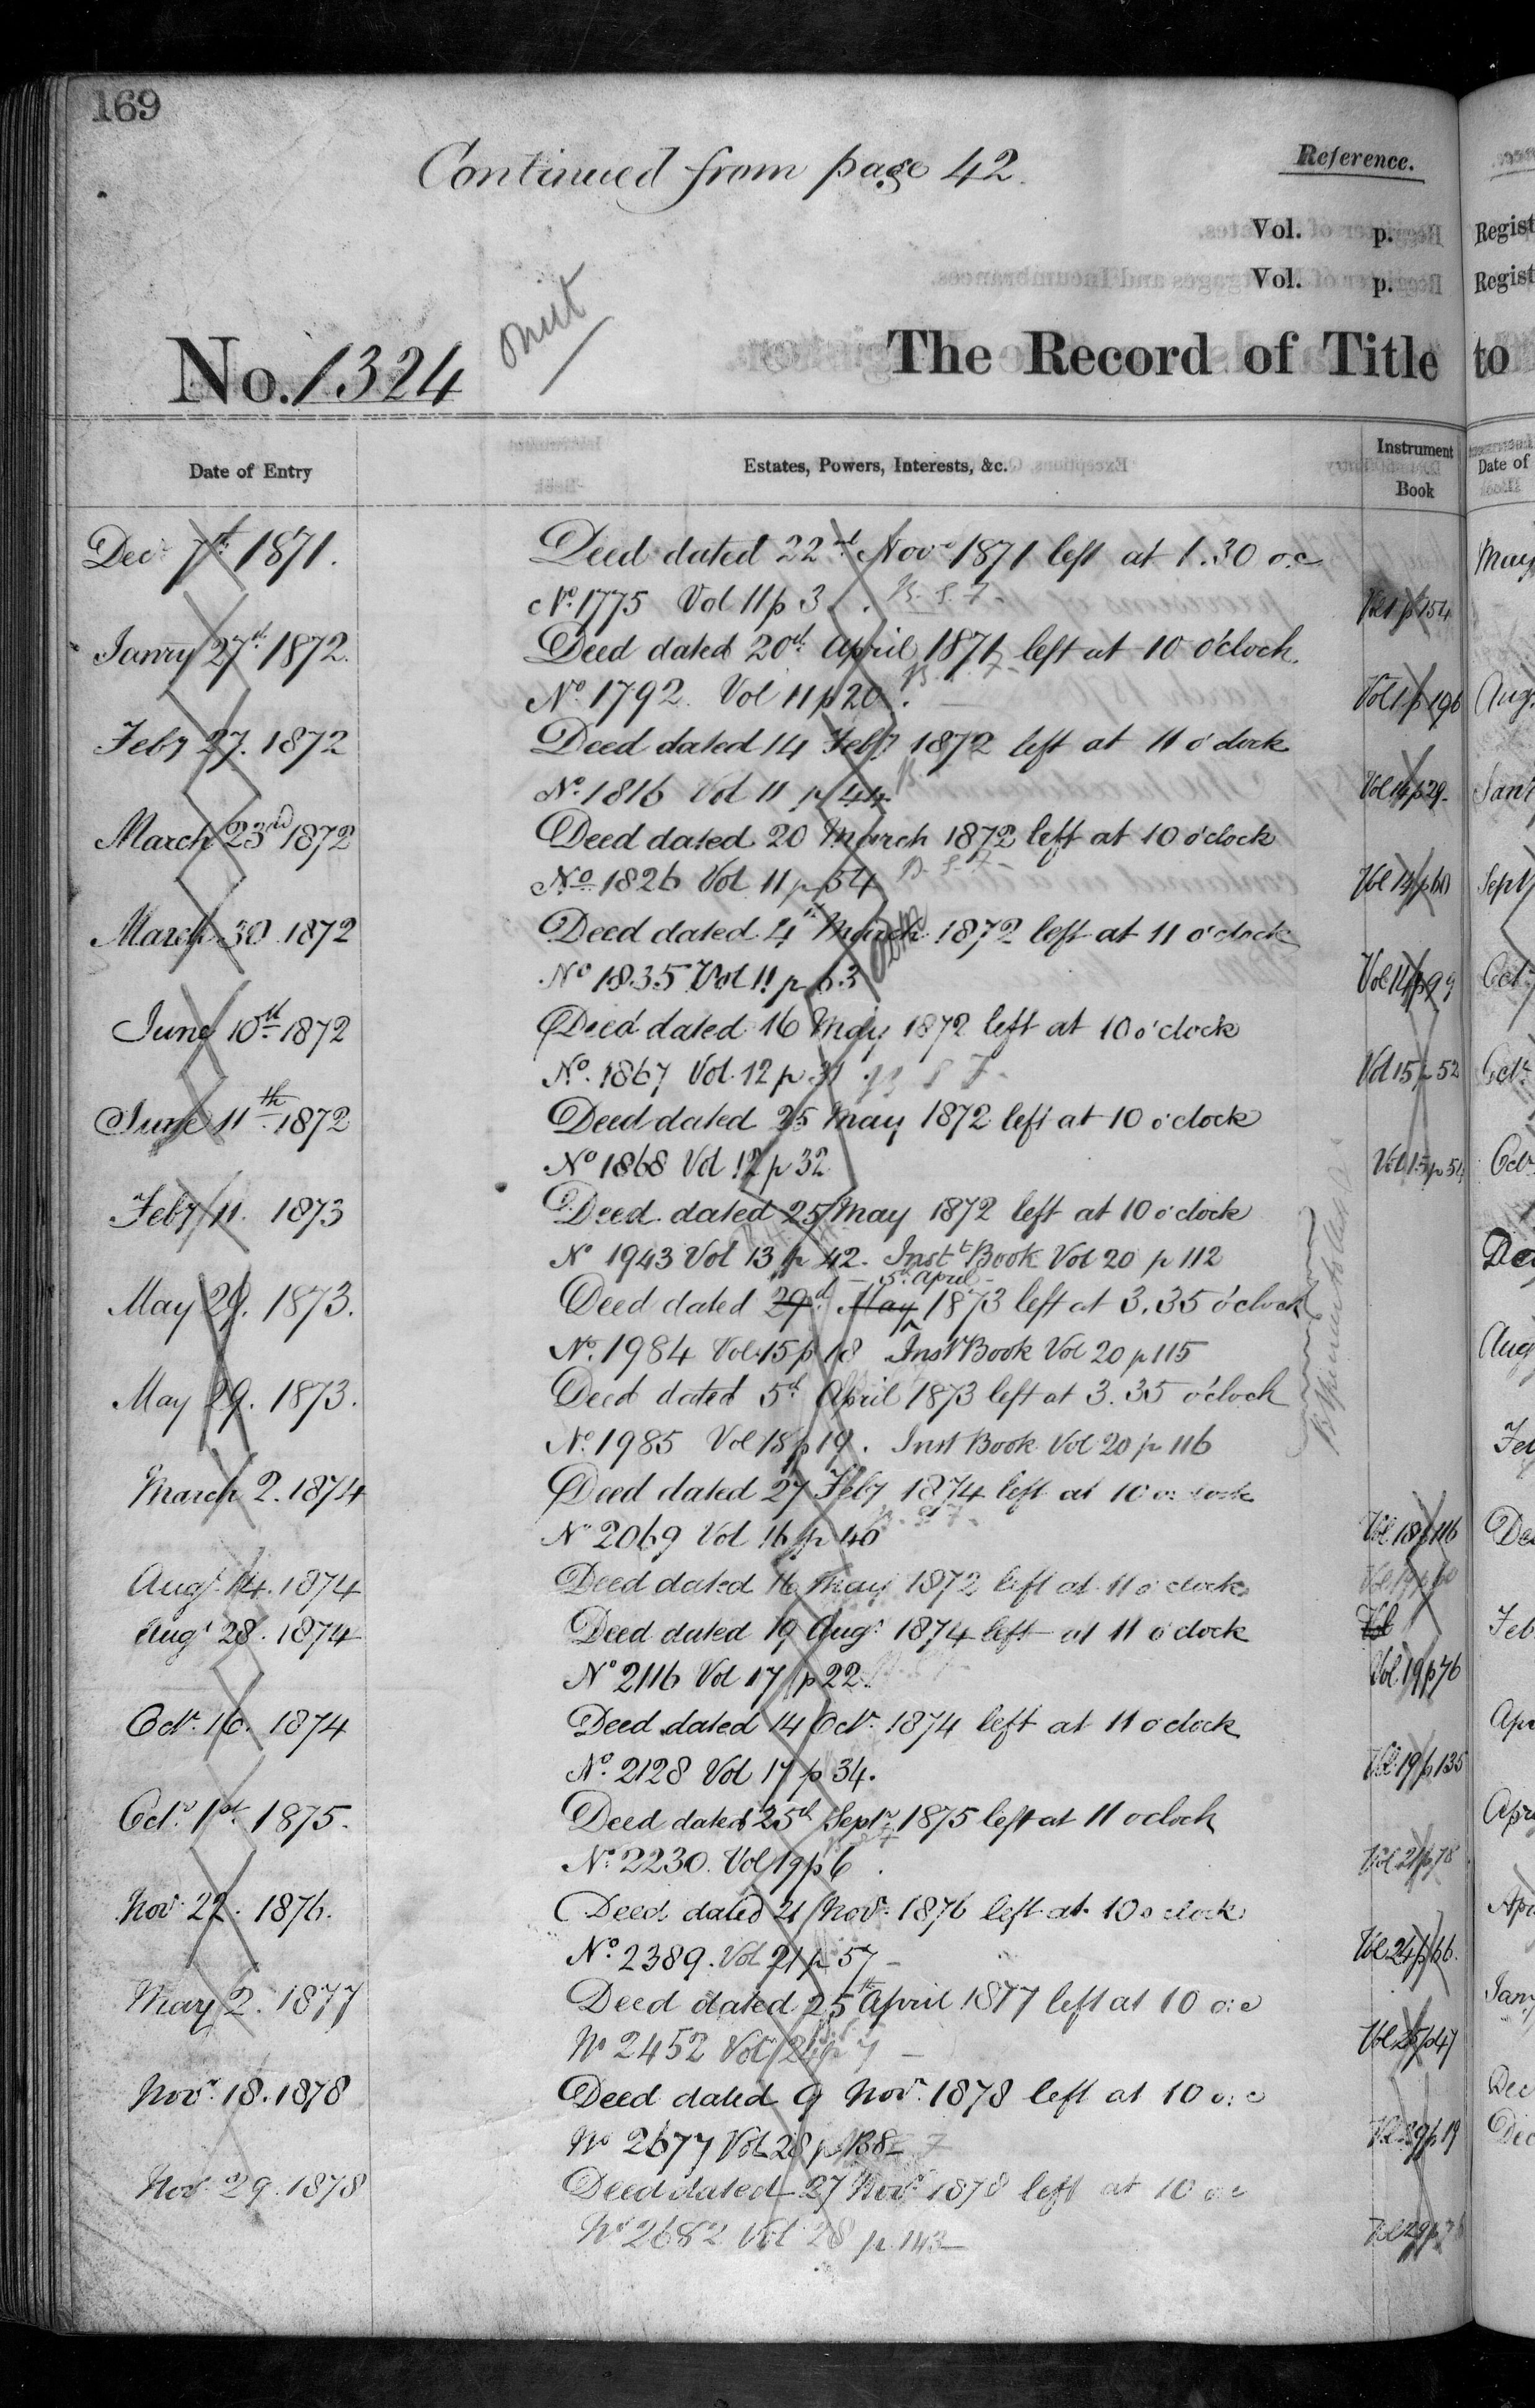 169
Continued from page 42.
Reference.
Vol. p.
Vol. p.
Regist
Regist
No. 1324
omit
The Record of Title to
Date of Entry
Estates, Powers, Interests, &c.
Instrument Book
Date of
Decr 7th 1871.
Deed dated 22nd Novr 1871 left at 1.30 o.c
May
No. 1775 Vol 11 p 3.
Vol 1 p 154
Janry 27th 1872.
Deed dated 20th April 1871 left at 10 o'clock.
No. 1792. Vol 11 p 20.
Vol 1 p 196
Aug.
Feby 27. 1872
Deed dated 14 Feby 1872 left at 11 o'clock
No. 1816 Vol 11 p 44
Vol 14 p 29
March 23rd 1872
Deed dated 20 March 1872 left at 10 o'clock
No. 1826 Vol 11 p 54 B.S.F.
Vol 14 p 60
March 30 1872
Deed dated 4th March 1872 left at 11 o'clock
No 1835 Vol 11 p 63
Vol 14 p 99
June 10th 1872
Deed dated 16 May 1872 left at 10 o'clock
No. 1867 Vol. 12 p 31 B S F.
Vol 15 p 52
June 11th 1872
Deed dated 25 May 1872 left at 10 o'clock
No 1868 Vol 12 p 32
Vol 15 p 54
Feby 11. 1873
Deed dated 25 May 1872 left at 10 o'clock
No 1943 Vol 13 p 42. Instt Book Vol 20 p 112
May 29. 1873.
5th April
Deed dated 29th May 1873 left at 3.35 o'clock
No. 1984 Vol 15 p 18 Inst Book Vol 20 p 115
May 29. 1873.
Deed dated 5th April 1873 left at 3.35 o'clock
No. 1985 Vol 15 p 19. Inst Book Vol 20 p 116
March 2. 1874
Deed dated 27 Feby 1874 left at 10 o'clock
No 2069 Vol 16 p 40
Vol. 18 p 116
Augt 14. 1874
Deed dated 16 May 1872 left at 11 o'clock
Augt 28. 1874
Deed dated 19 Augt 1874 left at 11 o'clock
Vol
No 2116 Vol 17 p 22.
Vol. 19 p 76
Octr. 16. 1874
Deed dated 14 Octr. 1874 left at 11 o'clock
No. 2128 Vol 17 p 34.
Vol. 19 p 135
Octr 1st 1875.
Deed dated 25th Septr 1875 left at 11 o'clock
No. 2230. Vol 19 p 6.
Vol 21 p 78
Nov. 22. 1876.
Deed dated 21 Novr. 1876 left at 10 o'clock
No. 2389. Vol 21 p 57
May 2. 1877
Deed dated 25th April 1877 left at 10 o:c
No 2452 Vol 24 p 7
Vol 25 p 47
Novr. 18. 1878
Deed dated 9 Novr. 1878 left at 10 o:c
No 2677 Vol 28 p 138
Vol 29 p 19
Nov. 29. 1878
Deed dated 27 Novr 1878 left at 10 o c
No 2682 Vol 28 p 143